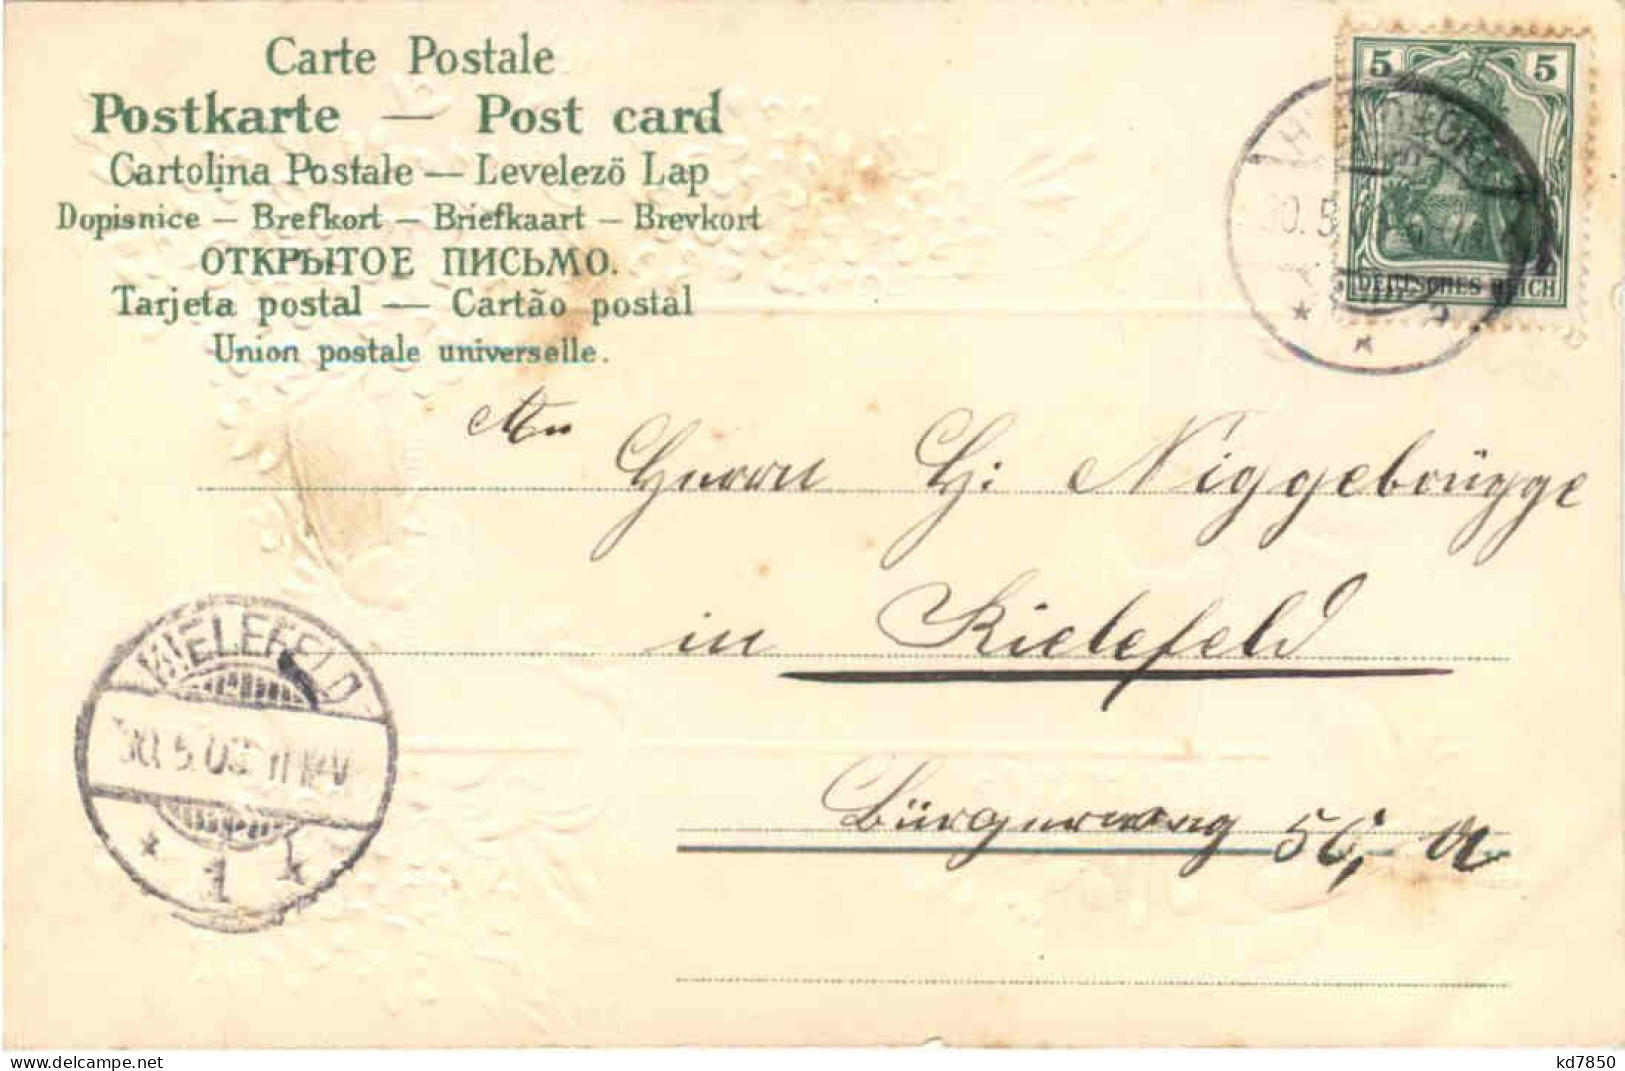 Carte Postale
Postkarte — Post card
Cartolina Postale — Levelező Lap
Dopisnice — Brefkort — Briefkaart — Brevkort
ОТКРЫТОЕ ПИСЬМО.
Tarjeta postal — Cartão postal
Union postale universelle.
5 5
DEUTSCHES REICH
An
Herrn H: Niggebrügge
in Bielefeld
BIELEFELD
30.5.03
* 1 *
Bürgerweg 56, a
delcampe.net
kd7850